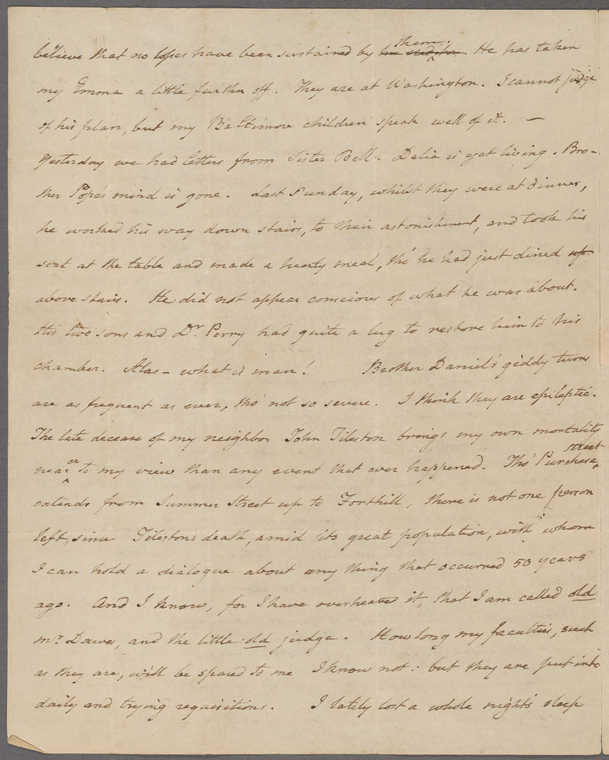 believe that no losses have been sustained by them. He has taken
my Emma a little further off. They are at Washington. I cannot judge
of his plan, but my Baltimore children speak well of it. —
Yesterday we had letters from Sister Bell. Delia is yet living. Bro-
ther Pope's mind is gone. Last Sunday, whilst they were at dinner,
he worked his way down stairs, to their astonishment, and took his
seat at the table and made a hearty meal, tho' he had just dined
above stairs. He did not appear conscious of what he was about.
His two sons and Dr. Perry had quite a lug to restore him to his
chamber. Alas – what is man! Brother Daniel's giddy turns
are as frequent as ever, tho' not so severe. I think they are epileptic.
The late decease of my neighbor John Tileston brings my own mortality
nearer to my view than any event that ever happened. Tho' Purchase street
extends from Summer Street up to Forthill, there is not one person
left, since Tilestons death, amid its great population, with whom
I can hold a dialogue about any thing that occurred 50 years
ago. And I know, for I have overheard it, that I am called old
Mr. Dawes, and the little old judge. How long my faculties, such
as they are, will be spared to me I know not: but they are put into
daily and trying requisitions. I lately lost a whole night's sleep